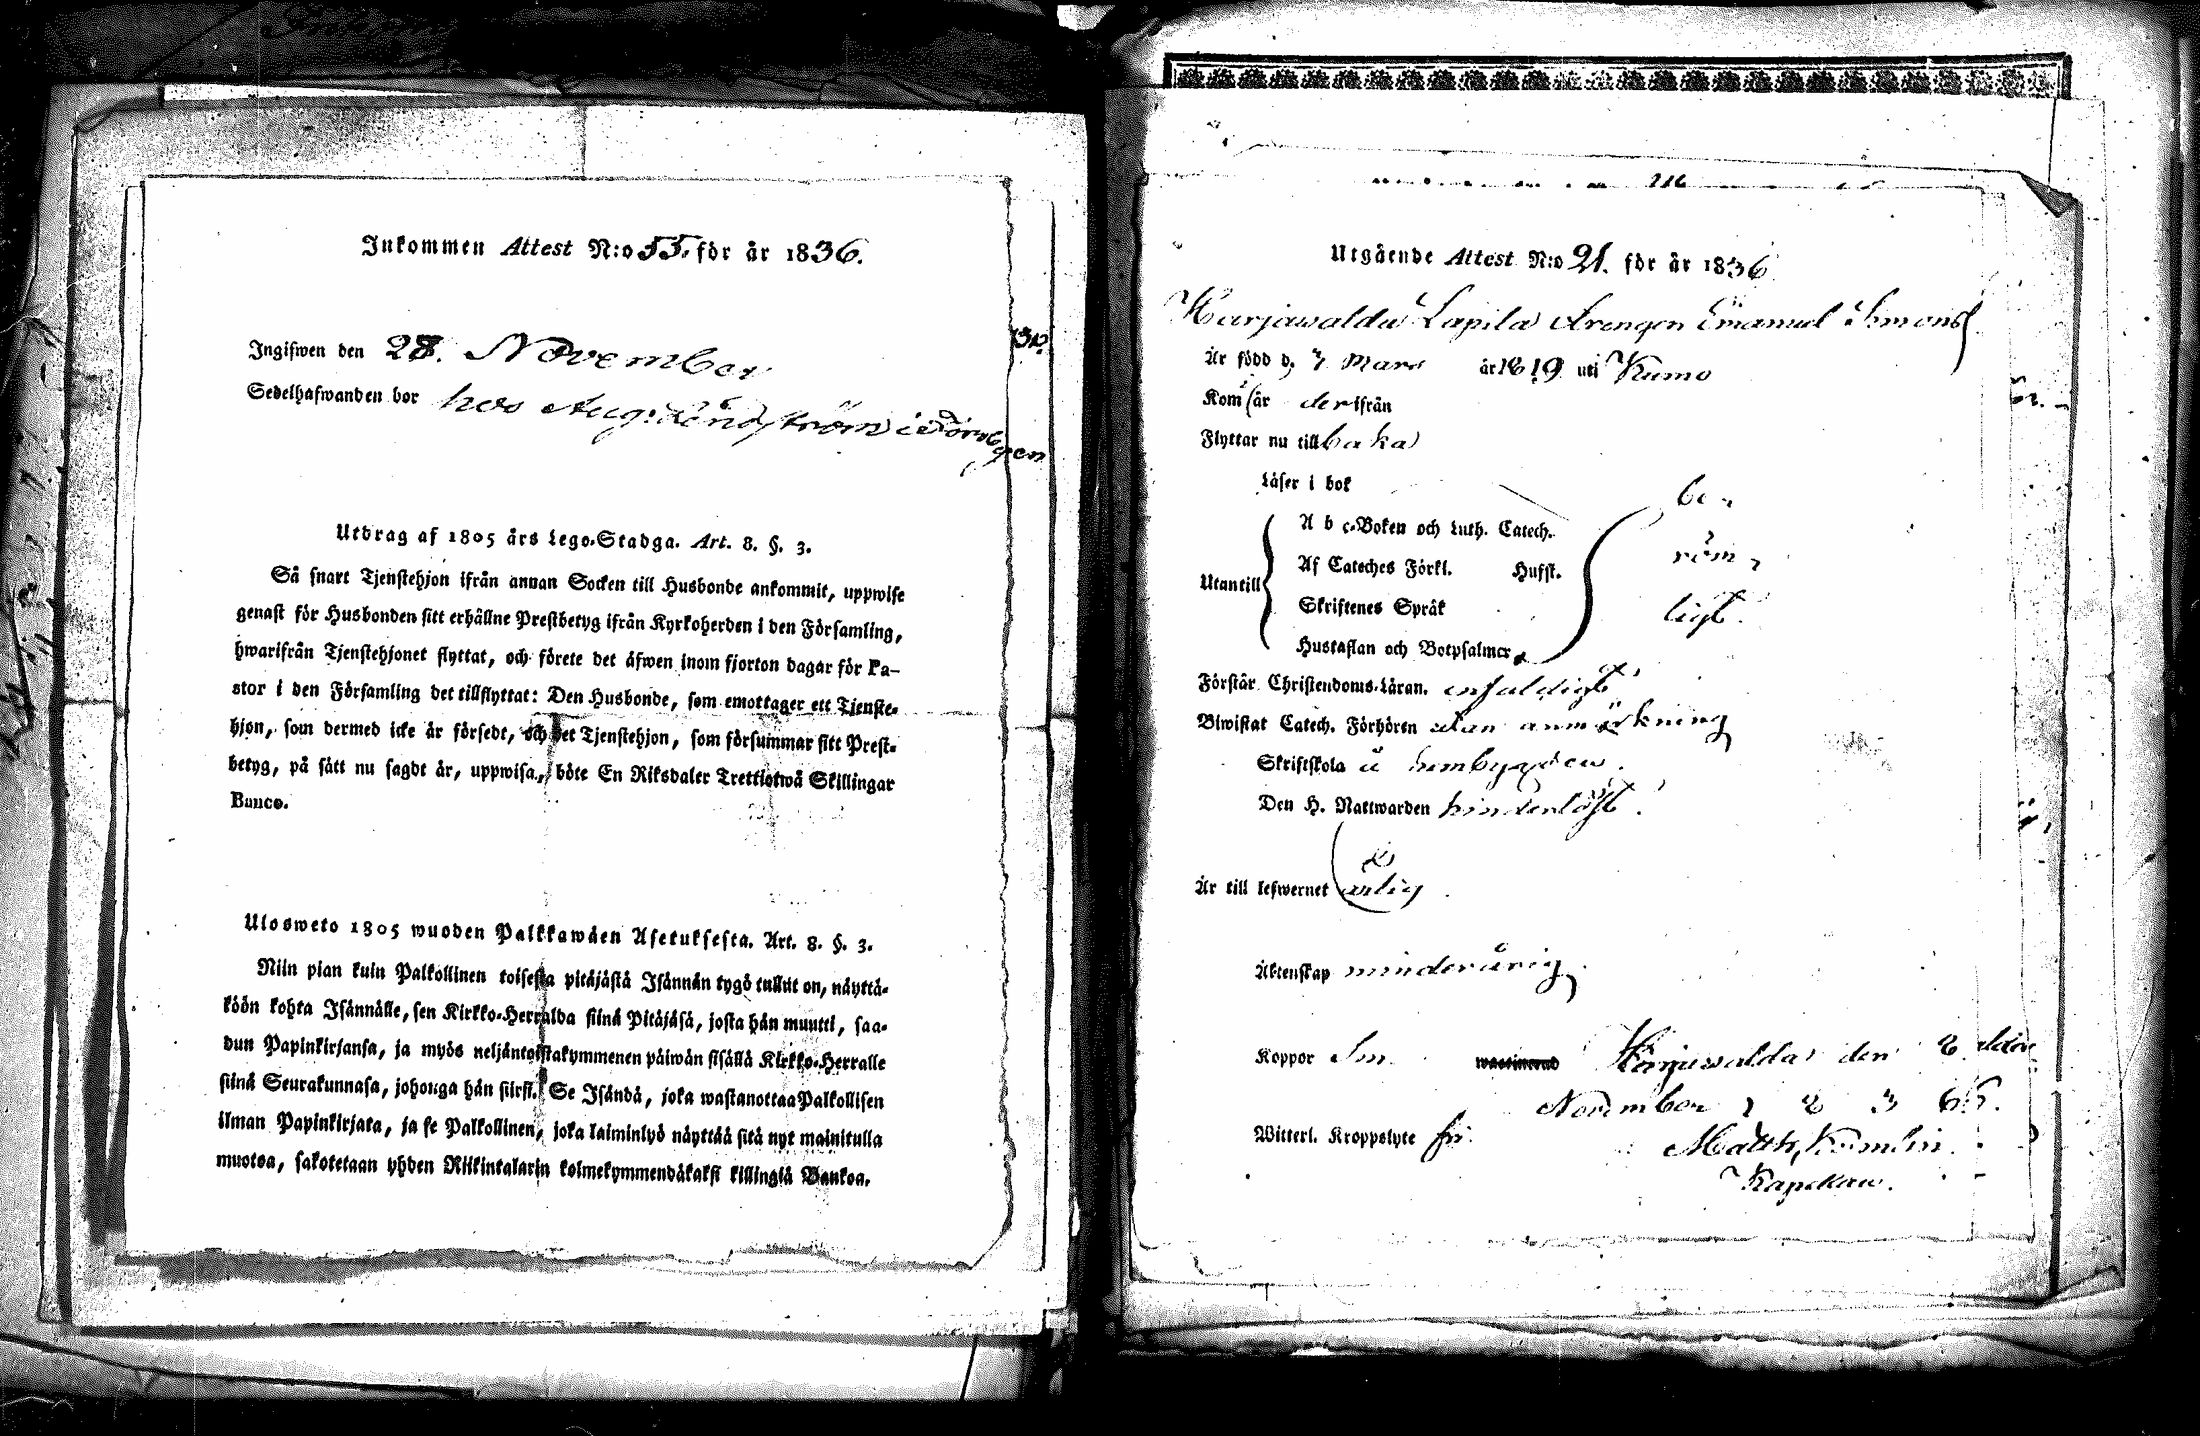 Inkommen Attest N:o 55. för år 1836.
Ingifwen den 28. November
Sedelhafwanden bor hos Aug: Lindström i
Utdrag af 1805 års Lego-Stadga. Art. 8. §. 3.
Så snart Tjenstehjon ifrån annan Socken till Husbonde ankommit, uppwise
genast för Husbonden sitt erhållne Prestbetyg ifrån Kyrkoherden i den Församling,
hwarifrån Tjenstehjonet flyttat, och förete det äfwen inom fjorton dagar för Pa-
stor i den Församling det tillflyttat: Den Husbonde, som emottager ett Tjenste-
hjon, som dermed icke är försedt, och det Tjenstehjon, som försummar sitt Prest-
betyg, på sätt nu sagdt är, uppwisa, böte En Riksdaler Trettiotwå Skillingar
Banco.
Ulosweto 1805 wuoden Palkkawäen Asetuksesta. Art. 8. §. 3.
Niin pian kuin Palkollinen toisesta pitäjästä Isännän tygö tullut on, näyttä-
köön kohta Isännälle, sen Kirkko-Herralda siinä Pitäjäsä, josta hän muutti, saa-
dun Papinkirjansa, ja myös neljäntoistakymmenen päiwän sisällä Kirkko-Herralle
siinä Seurakunnasa, johonga hän siirsi. Se Isändä, joka wastanottaa Palkollisen
ilman Papinkirjata, ja se Palkollinen, joka laiminlyö näyttää sitä nyt mainitulla
muotoa, sakotetaan yhden Riikintalarin kolmekymmendäkaksi killingiä Bankoa.
Utgående Attest N:o 91. för år 1836
Harjawalda Lapila Drengen Emanuel Simonss
Är född d. 7 Mars år 1819 uti Kumo
Kom får der ifrån
Flyttar nu tillbaka
Läser i bok be-
A b c-Boken och Luth. Catech.
Af Cateches Förkl. Husf. röm-
Utantill
Skriftenes Språk ligt.
Hustaflan och Botpsalmer
Förstår Christendoms-Läran. enfaldigt
Biwistat Catech. Förhören utan anmärkning
Skriftskola
Den H. Nattwarden hinderlöst.
Är till lefwernet ärlig
Äktenskap minderårig
Koppor Harjawalda den 8
November 1836.
Witterl. Kroppslyte fri.
Matth,
Kapellan.